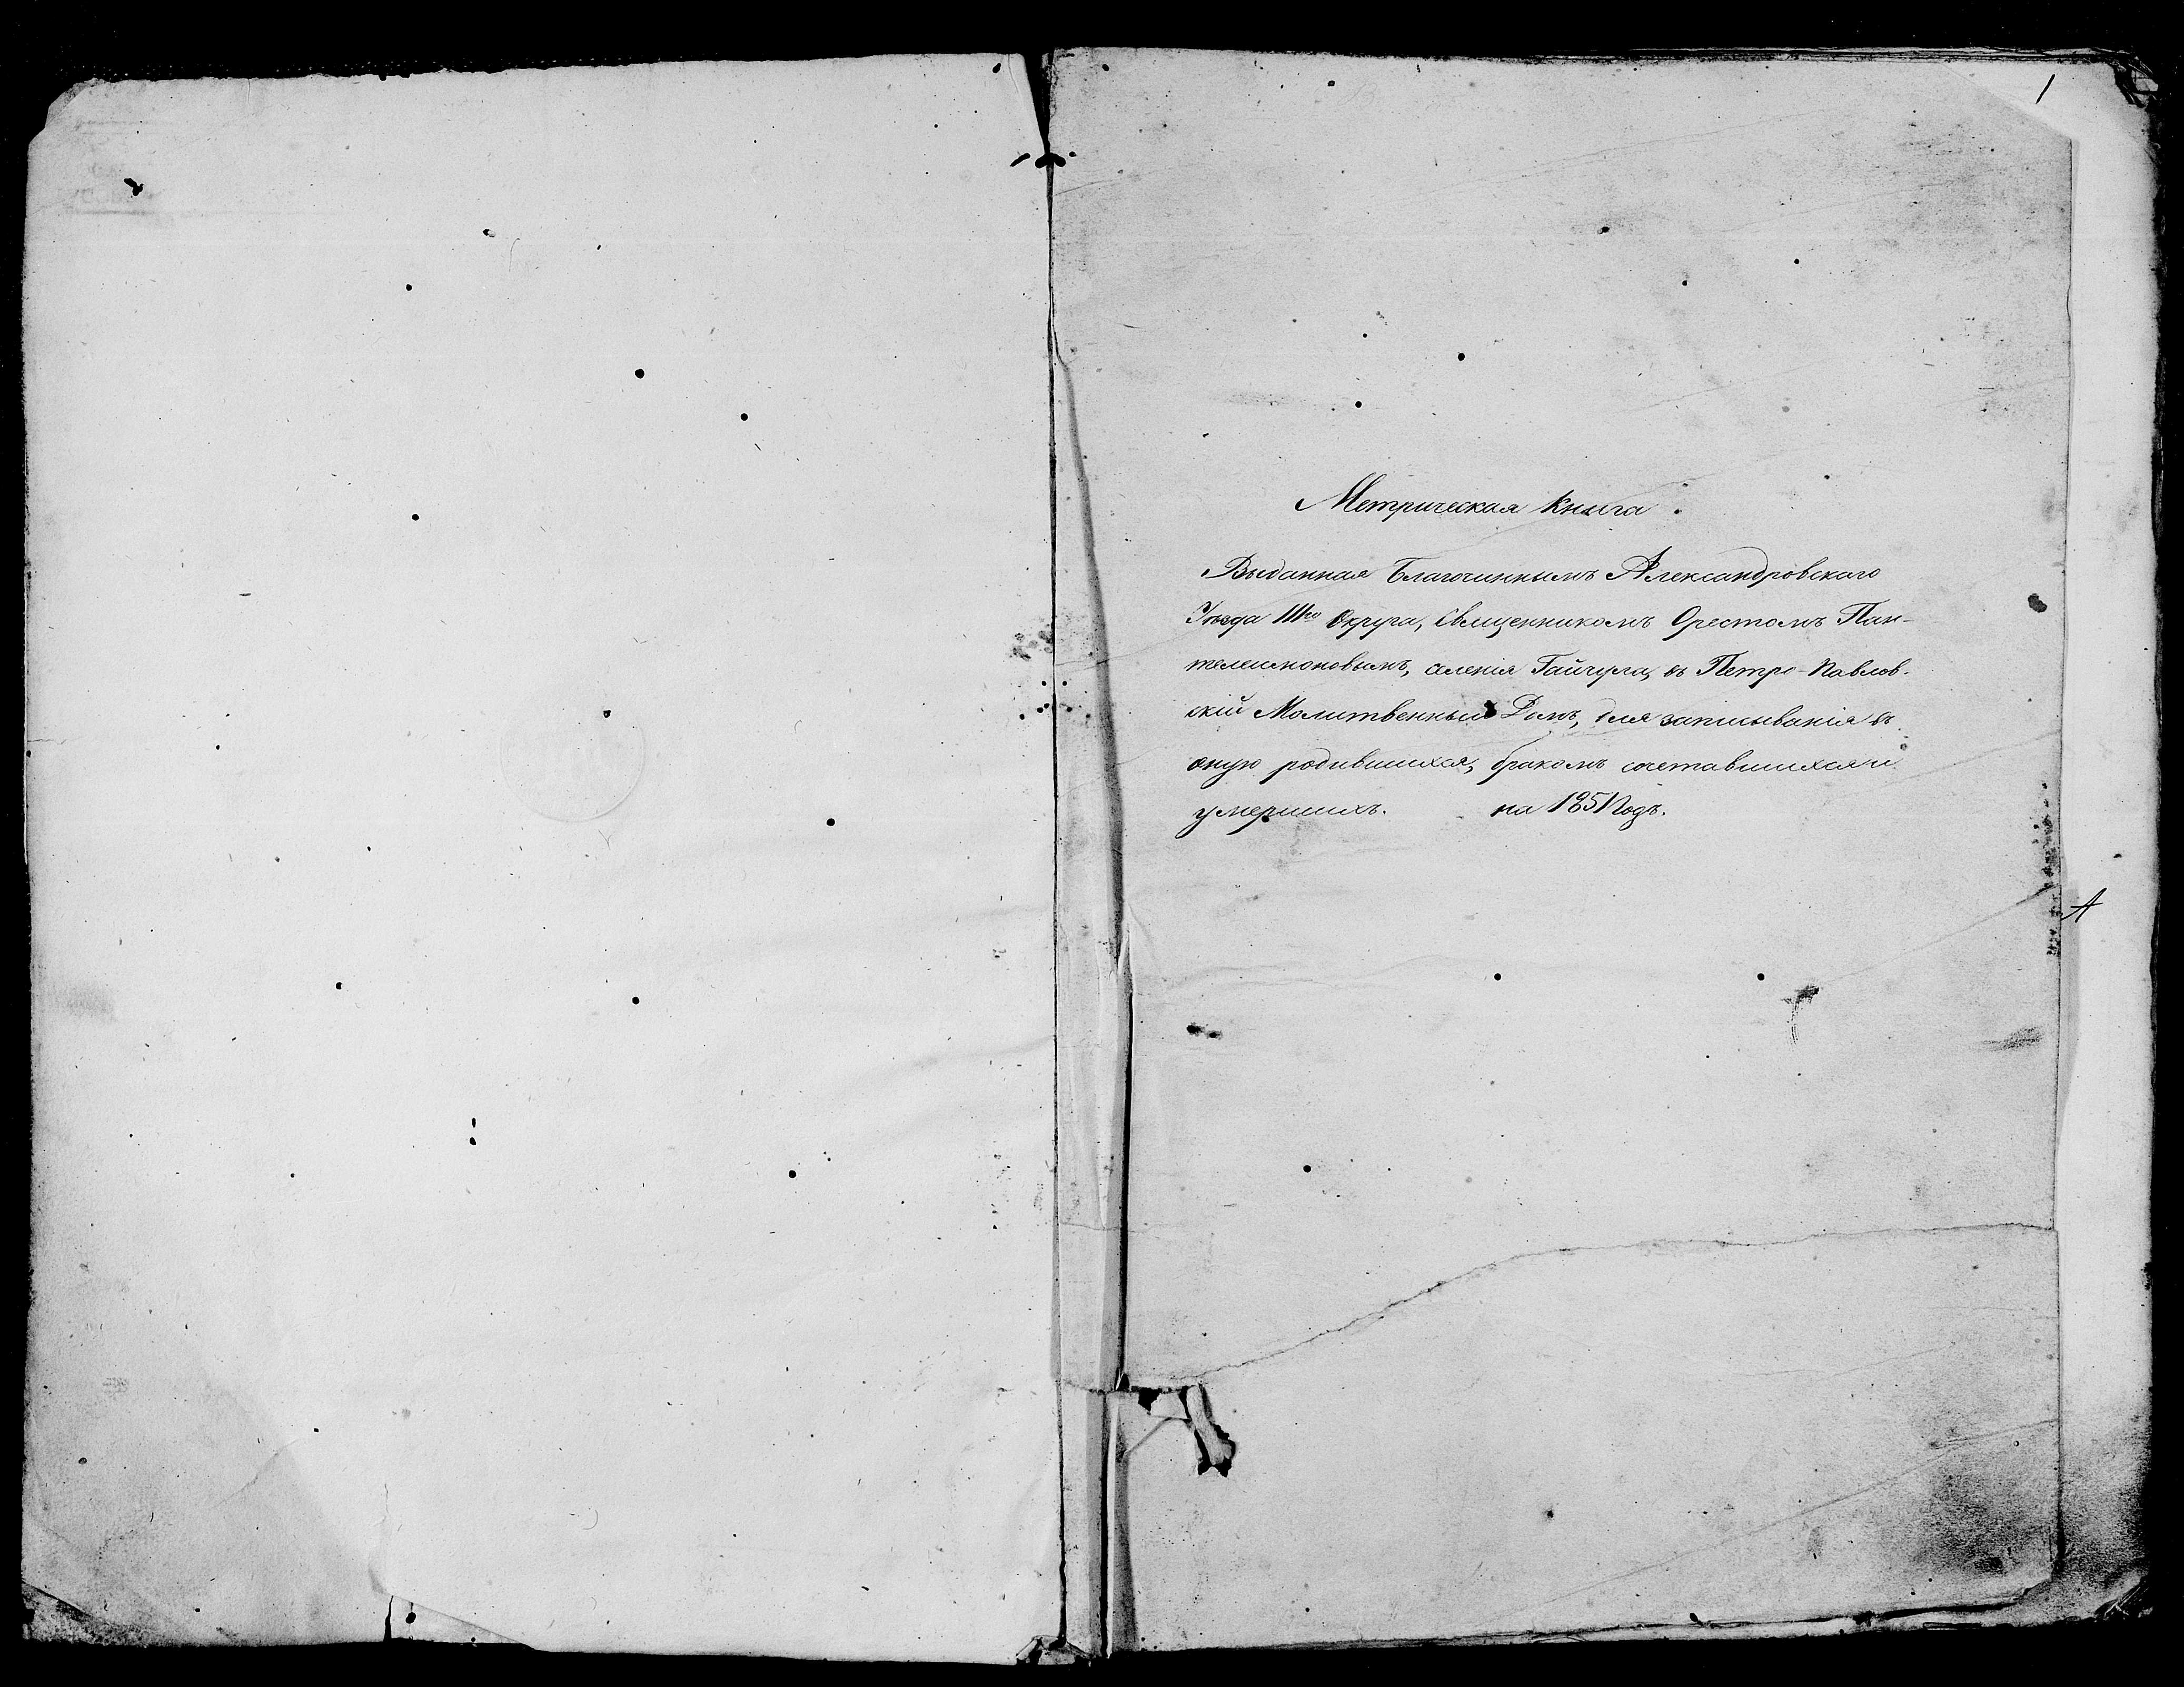 1
Метрическая Книга.
Выданная Благочиннымъ Александровскаго
Уѣзда IIIго Округа, Священникомъ Орестомъ Пан-
телеимоновымъ, селенія Гайчула, въ Петро-Павлов-
скій Молитвенный Домъ, для записыванія въ
оную родившихся, бракомъ сочетавшихся и
умершихъ. на 1851 Годъ.